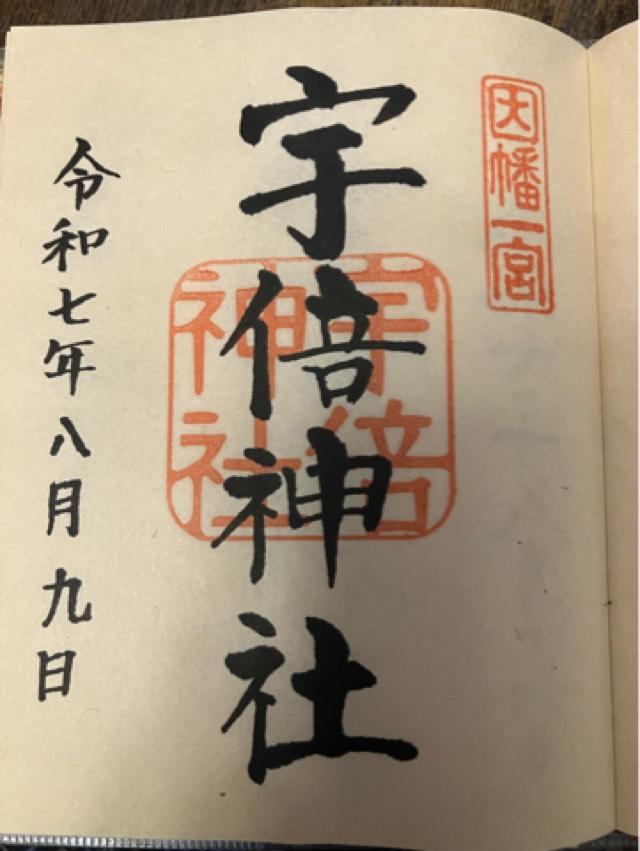 因幡一宮
宇倍神社
宇倍
神社
令和七年八月九日